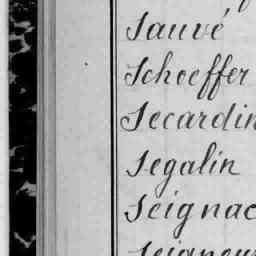 Sauvé
Schoeffer
Secardin
Segalin
Seignac